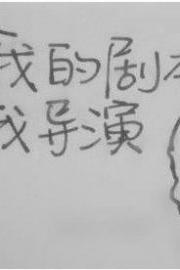 我的剧
我导演